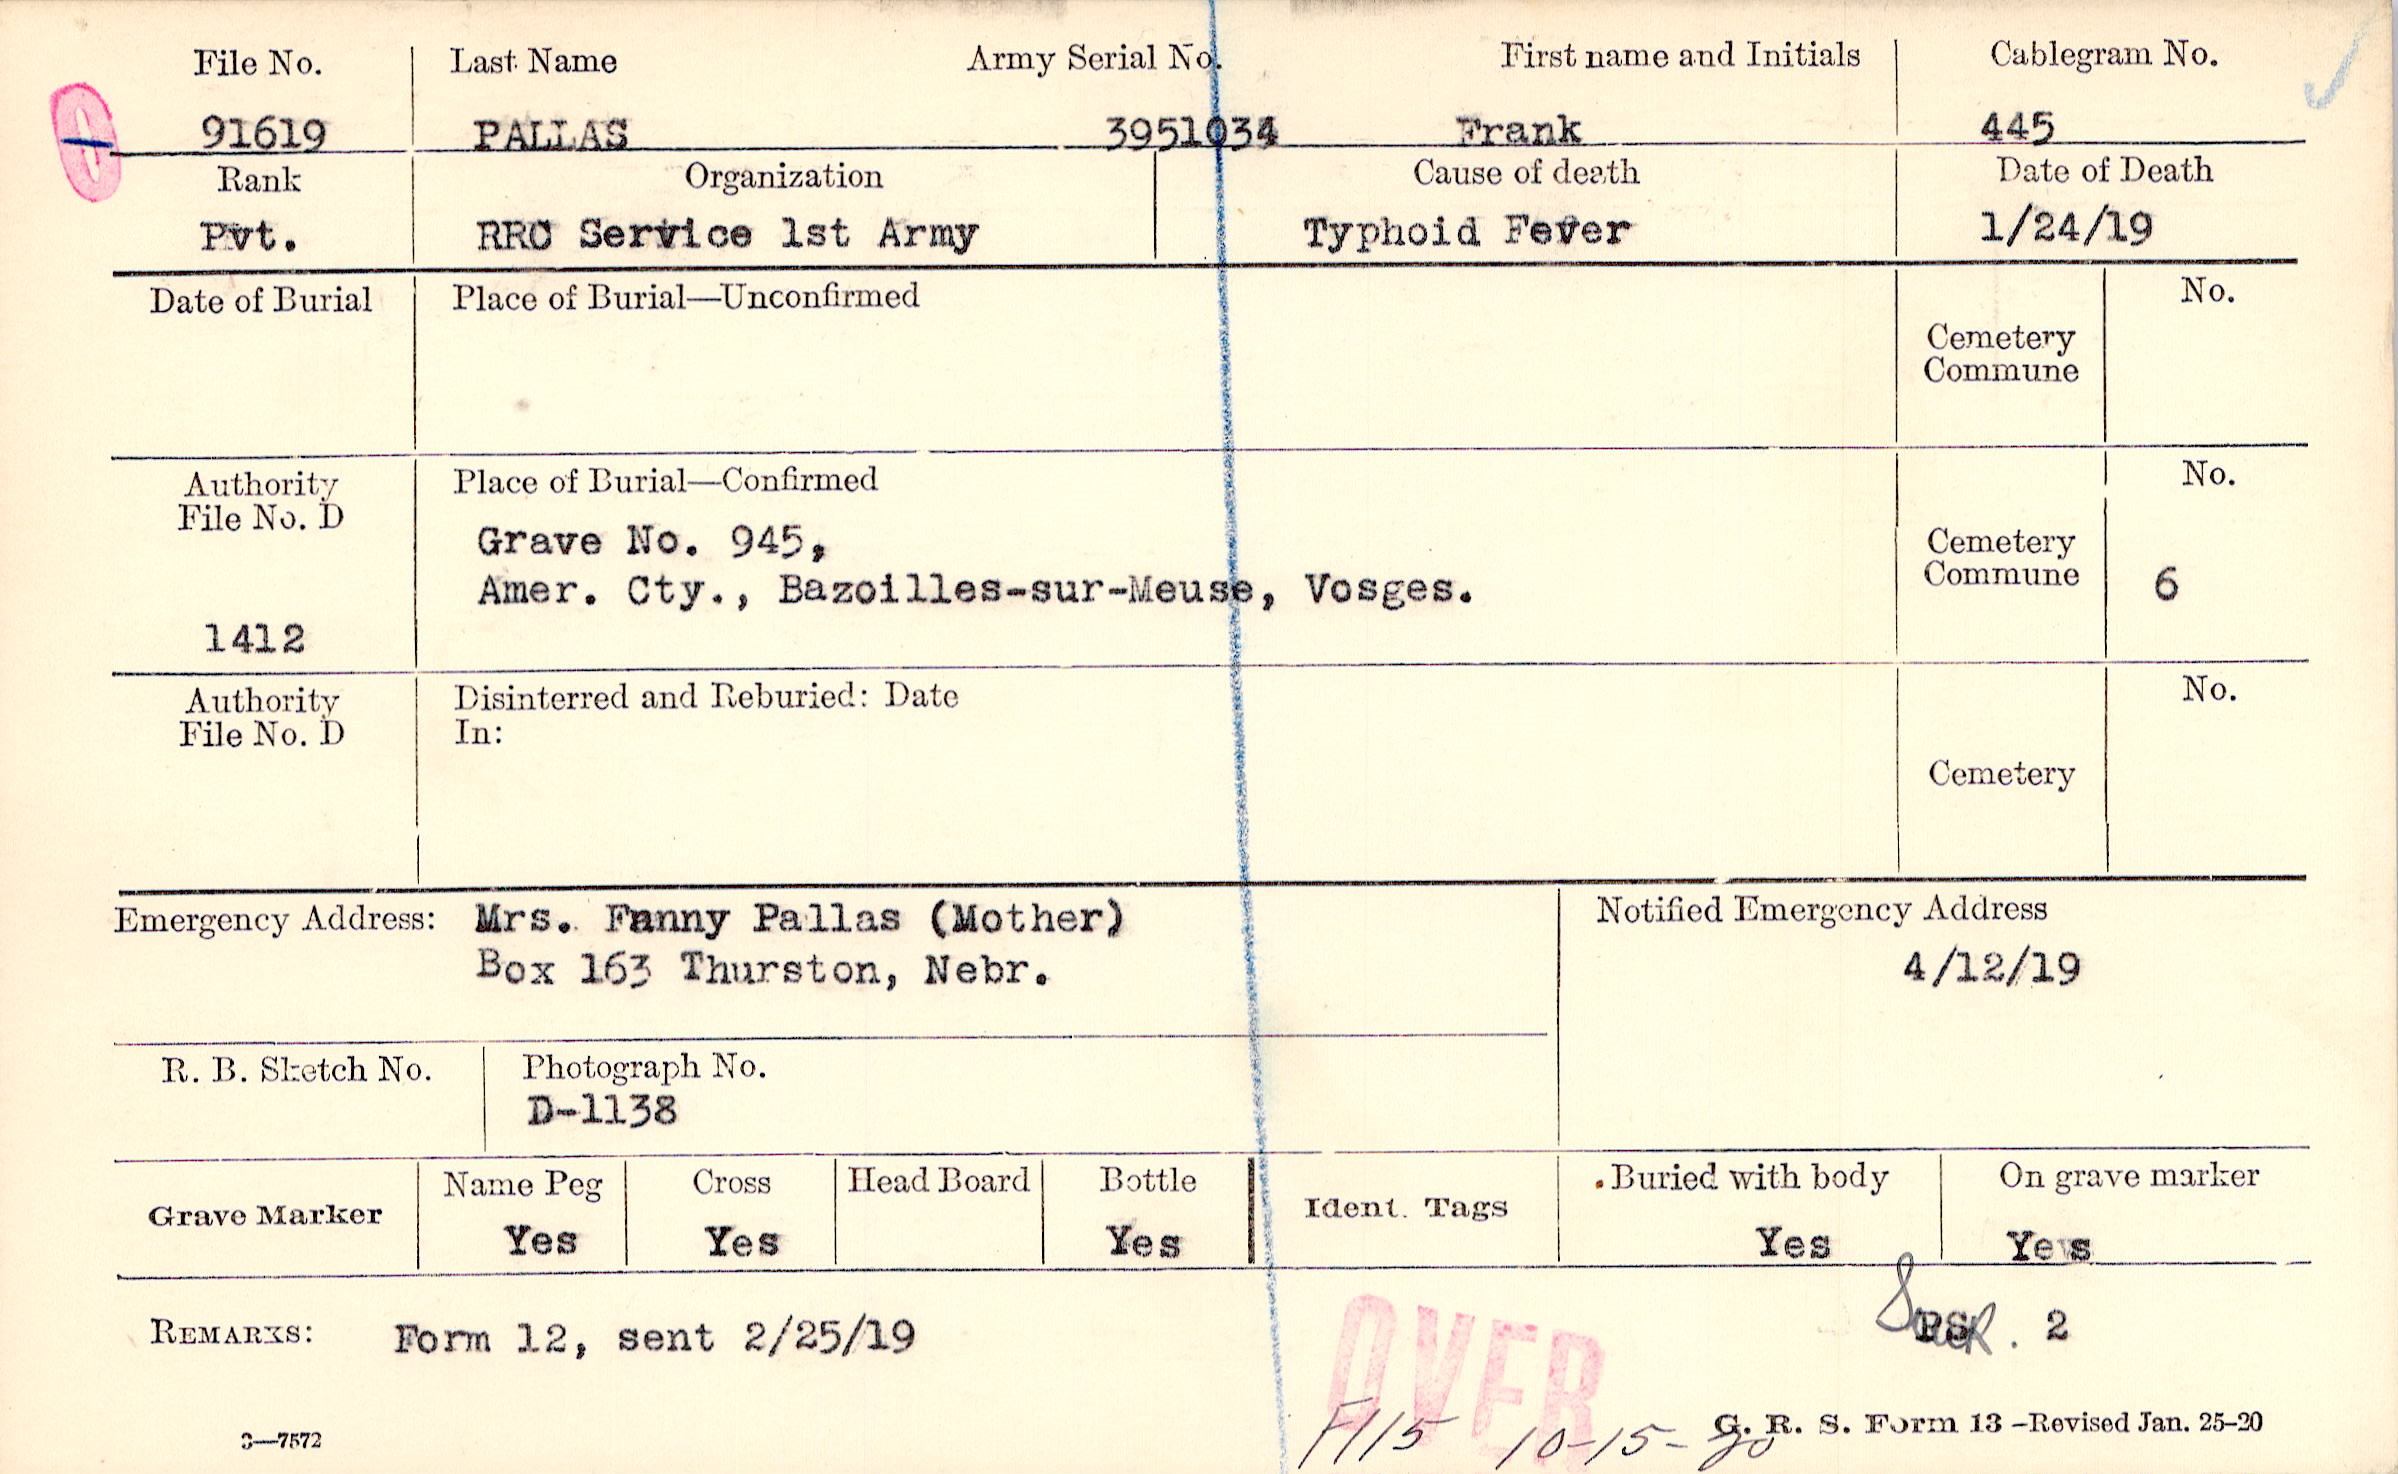 File No. Last Name Army Serial No. First name and Initials Cablegram No.
91619 PALLAS 3951034 Frank 445
Rank Organization Cause of death Date of Death
Pvt. RRC Service 1st Army Typhoid Fever 1/24/19
Date of Burial Place of Burial—Unconfirmed No.
Cemetery
Commune
Authority Place of Burial—Confirmed No.
File No. D
Grave No. 945, Cemetery
Amer. Cty., Bazoilles-sur-Meuse, Vosges. Commune 6
1412
Authority Disinterred and Reburied: Date No.
File No. D In:
Cemetery
Emergency Address: Mrs. Fanny Pallas (Mother) Notified Emergency Address
Box 163 Thurston, Nebr. 4/12/19
R. B. Sketch No. Photograph No.
D-1138
Grave Marker Name Peg Cross Head Board Bottle Ident. Tags Buried with body On grave marker
Yes Yes Yes Yes Yes
REMARKS: Form 12, sent 2/25/19 2
OVER
F115 10-15-20 G. R. S. Form 13—Revised Jan. 25-20
3—7572